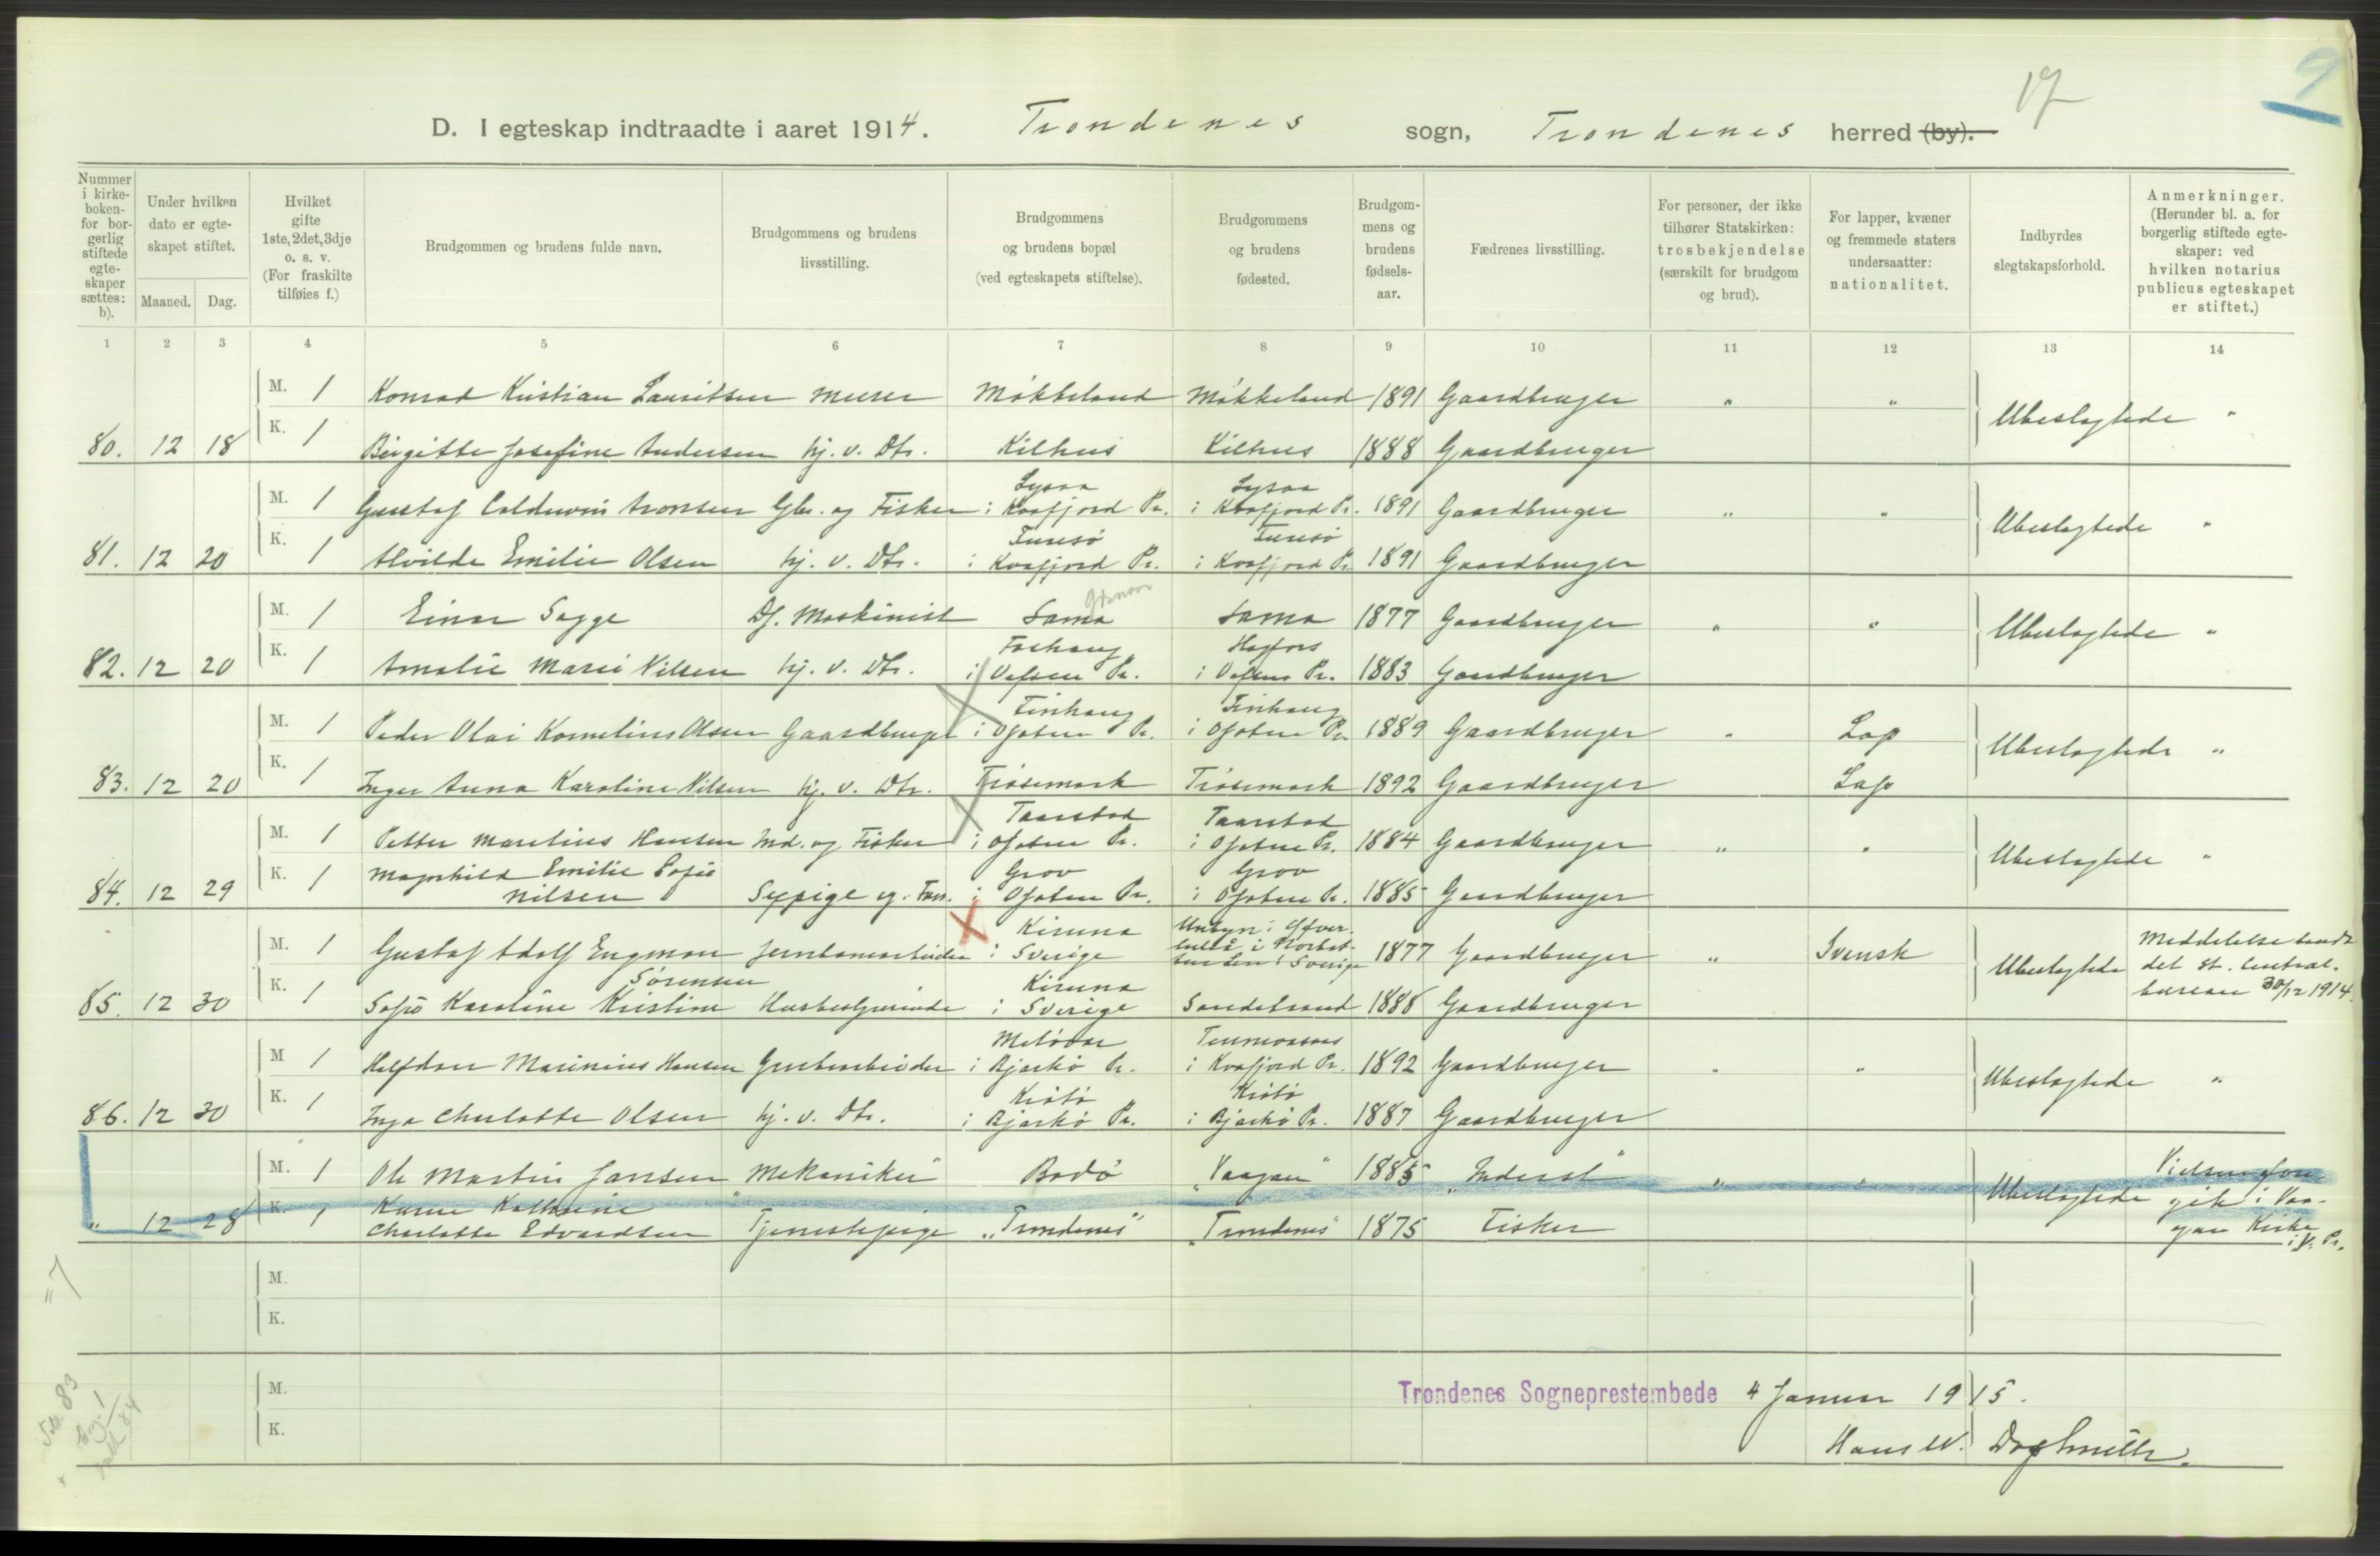 17
9
D. I egteskap indtraadte i aaret 1914. Trondenes sogn, Trondenes herred (by).
Nummer i kirke-boken- for bor-gerlig stiftede egte-skaper sættes: b).
Under hvilken dato er egte-skapet stiftet.
Maaned. Dag.
Hvilket gifte 1ste, 2det, 3dje o. s. v. (For fraskilte tilføies f.)
Brudgommen og brudens fulde navn.
Brudgommens og brudens livsstilling.
Brudgommens og brudens bopæl (ved egteskapets stiftelse).
Brudgommens og brudens fødested.
Brudgom-mens og brudens fødsels-aar.
Fædrenes livsstilling.
For personer, der ikke tilhører Statskirken: trosbekjendelse (særskilt for brudgom og brud).
For lapper, kvæner og fremmede staters undersaatter: nationalitet.
Indbyrdes slegtskapsforhold.
Anmerkninger. (Herunder bl. a. for borgerlig stiftede egte-skaper: ved hvilken notarius publicus egteskapet er stiftet.)
1 2 3 4 5 6 7 8 9 10 11 12 13 14
M. 1 Konrad Kristian Lauritsen murer Møkkeland Møkkeland 1891 Gaardbruger " "
80. 12 18 K. 1 Birgitte Josefine Andersen hj. v. Dtr. Kilhus Kilhus 1888 Gaardbruger Ubeslegtede "
M. 1 Gustaf Aronsen Gbr. og Fisker Lysaa i Kvæfjord Pr. Lysaa i Kvæfjord Pr. 1891 Gaardbruger " "
81. 12 20 K. 1 Alvilde Emilie Olsen hj. v. Dtr. i Kvæfjord Pr. i Kvæfjord Pr. 1891 Gaardbruger Ubeslegtede "
M. 1 Einar Sagge Df. Maskinist Sama Sama 1877 Gaardbruger " "
82. 12 20 K. 1 Amalie Marie Nilsen hj. v. Dtr. i Vefsen Pr. Hagfors i Vefsen Pr. 1883 Gaardbruger Ubeslegtede "
M. 1 Peder Olai Kornelius Olsen Gaardbruger Finhaug i Ofoten Pr. Finhaug i Ofoten Pr. 1889 Gaardbruger " Lap
83. 12 20 K. 1 Inger Anna Karoline Nilsen hj. v. Dtr. Trøsemark Trøsemark 1892 Gaardbruger Lap Ubeslegtede "
M. 1 Petter Marelius Hansen Ind. og Fisker Taarstad i Ofoten Pr. Taarstad i Ofoten Pr. 1884 Gaardbruger " "
84. 12 29 K. 1 Magnhild Emilie Sofie Nilsen Sypige Grov i Ofoten Pr. Grov i Ofoten Pr. 1885 Gaardbruger Ubeslegtede "
M. 1 Gustaf Adolf Engman Jernbanearbeider Kiruna i Sverige i Sverige 1877 Gaardbruger " Svensk
85. 12 30 K. 1 Sofie Karoline Kristine Sørensen Husbestyrerinde Kiruna i Sverige Sandstrand 1888 Gaardbruger Ubeslegtede Meddelelse sendt det st. Central-bureau 30/12 1914.
M 1 Halfdan Marinius Hansen Grubearbeider i Bjarkø Pr. i Kvæfjord Pr. 1892 Gaardbruger " "
86. 12 30 K. 1 Inga Charlotte Olsen hj. v. Dtr. Krøtø i Bjarkø Pr. Krøtø i Bjarkø Pr. 1887 Gaardbruger Ubeslegtede "
M. 1 Ole Martin Jansen Mekaniker Bodø "Vaagan" 1885 "Inderst" " "
" 12 28 K. 1 Karen Kathrine Charlotte Edvardsen "Tjenestepige "Trondenes" "Trondenes" 1875 Fisker Ubeslegtede Vielsen fore-gik i Vaa-gan Kirke i V. Pr.
= 7
M.
K.
M.
K.
Trondenes Sogneprestembede 4 Januar 1915.
Hans W.